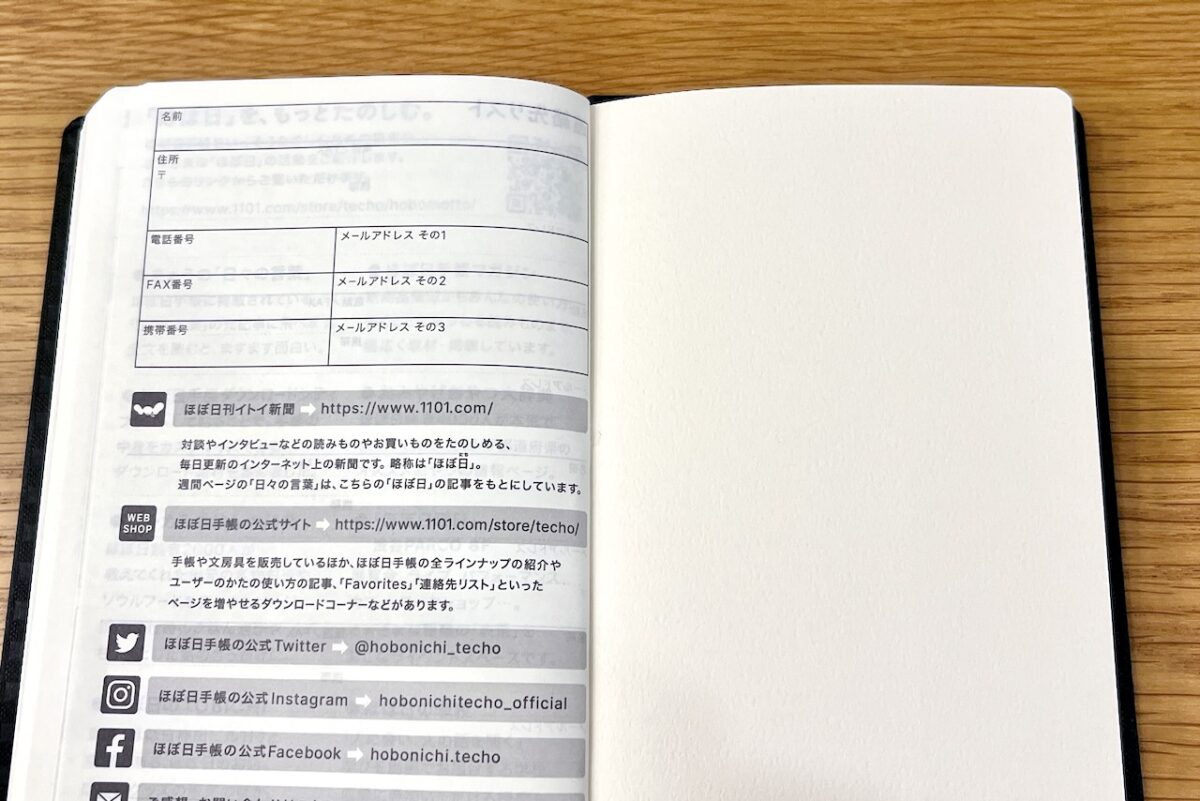 名前
住所
〒
電話番号
メールアドレス その1
FAX番号
メールアドレス その2
携帯番号
メールアドレス その3
ほぼ日刊イトイ新聞 ➡ https://www.1101.com/
対談やインタビューなどの読みものやお買いものをたのしめる、
毎日更新のインターネット上の新聞です。略称は「ほぼ日」。
週間ページの「日々の言葉」は、こちらの「ほぼ日」の記事をもとにしています。
WEB
SHOP
ほぼ日手帳の公式サイト ➡ https://www.1101.com/store/techo/
手帳や文房具を販売しているほか、ほぼ日手帳の全ラインナップの紹介や
ユーザーのかたの使い方の記事、「Favorites」「連絡先リスト」といった
ページを増やせるダウンロードコーナーなどがあります。
ほぼ日手帳の公式Twitter ➡ @hobonichi_techo
ほぼ日手帳の公式Instagram ➡ hobonichitecho_official
ほぼ日手帳の公式Facebook ➡ hobonichi.techo